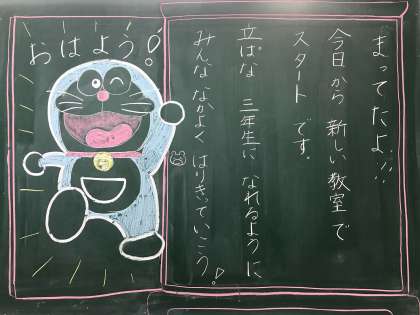 おはよう!
まってたよ!!
今日から 新しい教室で
スタート です。
立ぱな 三年生に なれるように
みんな なかよく はりきっていこう!